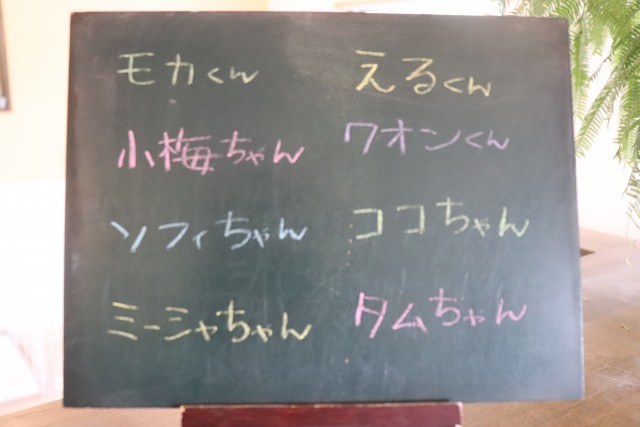 モカくん
えるくん
小梅ちゃん
クオンくん
ソフィちゃん
ココちゃん
ミーシャちゃん
タムちゃん